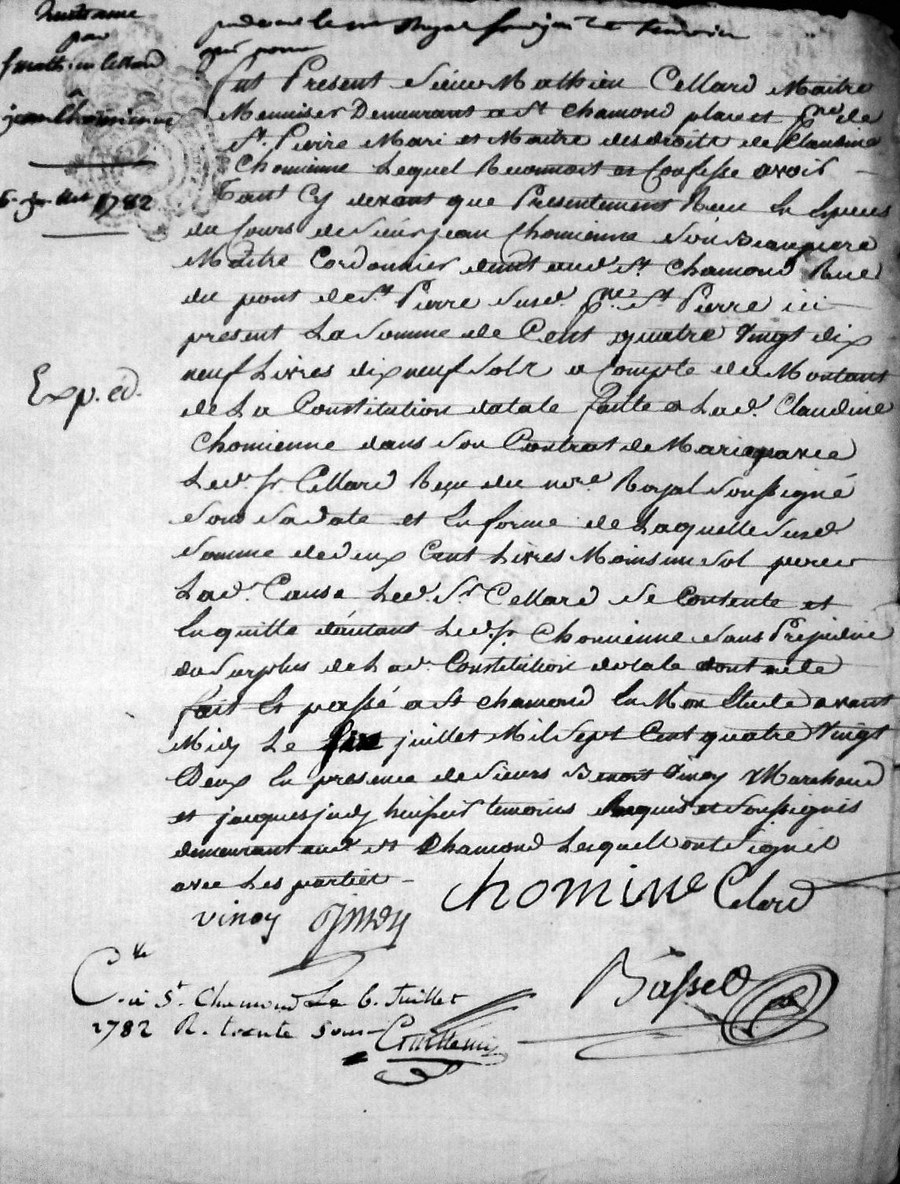 Quittance
par
Math. Cellard
à
jean Chomienne
6e juillet 1782
Exp. ed.
pardevant le nre Royal soussigné
fut Present Sieur Mathieu Cellard Maitre
Menuisier Demeurant a St chamond place et pse de
St Pierre Mari et Maitre des droits de Claudine
Chomienne Lequel Reconnoit et Confesse avoir
tant Cy devant que Presentement Reçu En Especes
du Cours de Sieur jean Chomienne Son Beaupere
Maitre Cordonnier dmt aud. St chamond Rue
du pont de St Pierre Susd. pse St Pierre ici
present La Somme de Cent quatre Vingt dix
neuf Livres dix neuf Sols a Compte du Montant
de La Constitution dotale faite a Lad. Claudine
Chomienne dans Son Contrat de Mariage avec
Led. Sr. Cellard Reçu du nore Royal Soussigné
Sous Sa date et En forme de Laquelle Susd.
Somme de deux Cent Livres Moins un Sol pour
Lad. Cause Led. Sr Cellard Se Contente et
En quitte dautant Led. Sr. Chomienne Sans Prejudice
du Surplus de Lad. Constitution dotale dont acte
fait Et passé a St chamond En Mon Etude avant
Midy Le Six juillet Mil Sept Cent quatre Vingt
Deux En presence de Sieurs Benoit Vinoy Marchand
et jacques judy huissier temoins Requis et Soussignés
demeurant aud. St Chamond Lesquels ont Signé
avec Les parties
chomiene Celard
vinoy
Bassed
C.lle à St. Chamond Le 6. Juillet
1782 R. trente sous